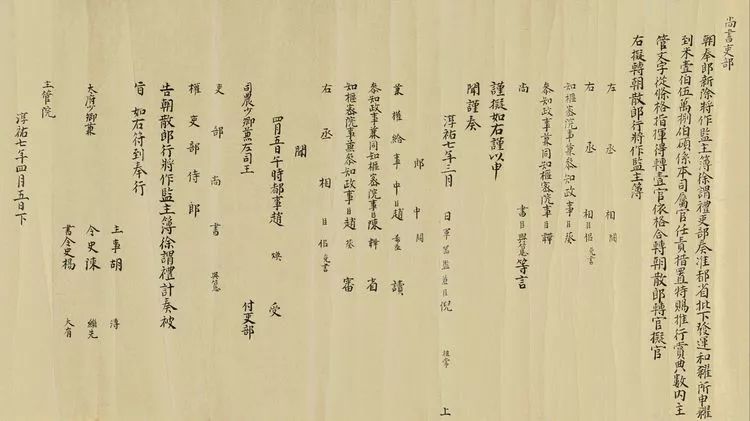 尚書吏部
朝奉郎新除將作監主簿徐謂禮吏部奏准都省批下發運和糴所申糴
到米壹伯伍萬捌伯碩係本司屬官任責措置特賜推行賞典數内主
管文字從條格指揮得轉壹官依格合轉朝散郎轉官擬官
右擬轉朝散郎行將作監主簿
左 丞 相 闕
右 丞 相 日 免書
知樞密院事兼參知政事日 葵
參知政事兼同知樞密院事日 韡
尚 書日 與𥲅 等言
謹擬如右謹以申
聞謹奏
郎 中 闕
淳祐七年三月 日軍器監兼 日 倪 祖常 上
兼權給事中日趙 希 讀
參知政事兼同知樞密院事日陳 韡 省
知樞密院事兼參知政事日趙 葵 審
右 丞 相 日 免書
聞
四月五日午時都事趙 煥 受
司農少卿兼左司王 付吏部
吏 部 尚 書
權 吏 部 侍 郎
告朝散郎行將作監主簿徐謂禮計奏被
旨如右符到奉行
主事胡 溥
太府少卿兼 令史陳 繼先
書令史楊 大有
主管院
淳祐七年四月五日下